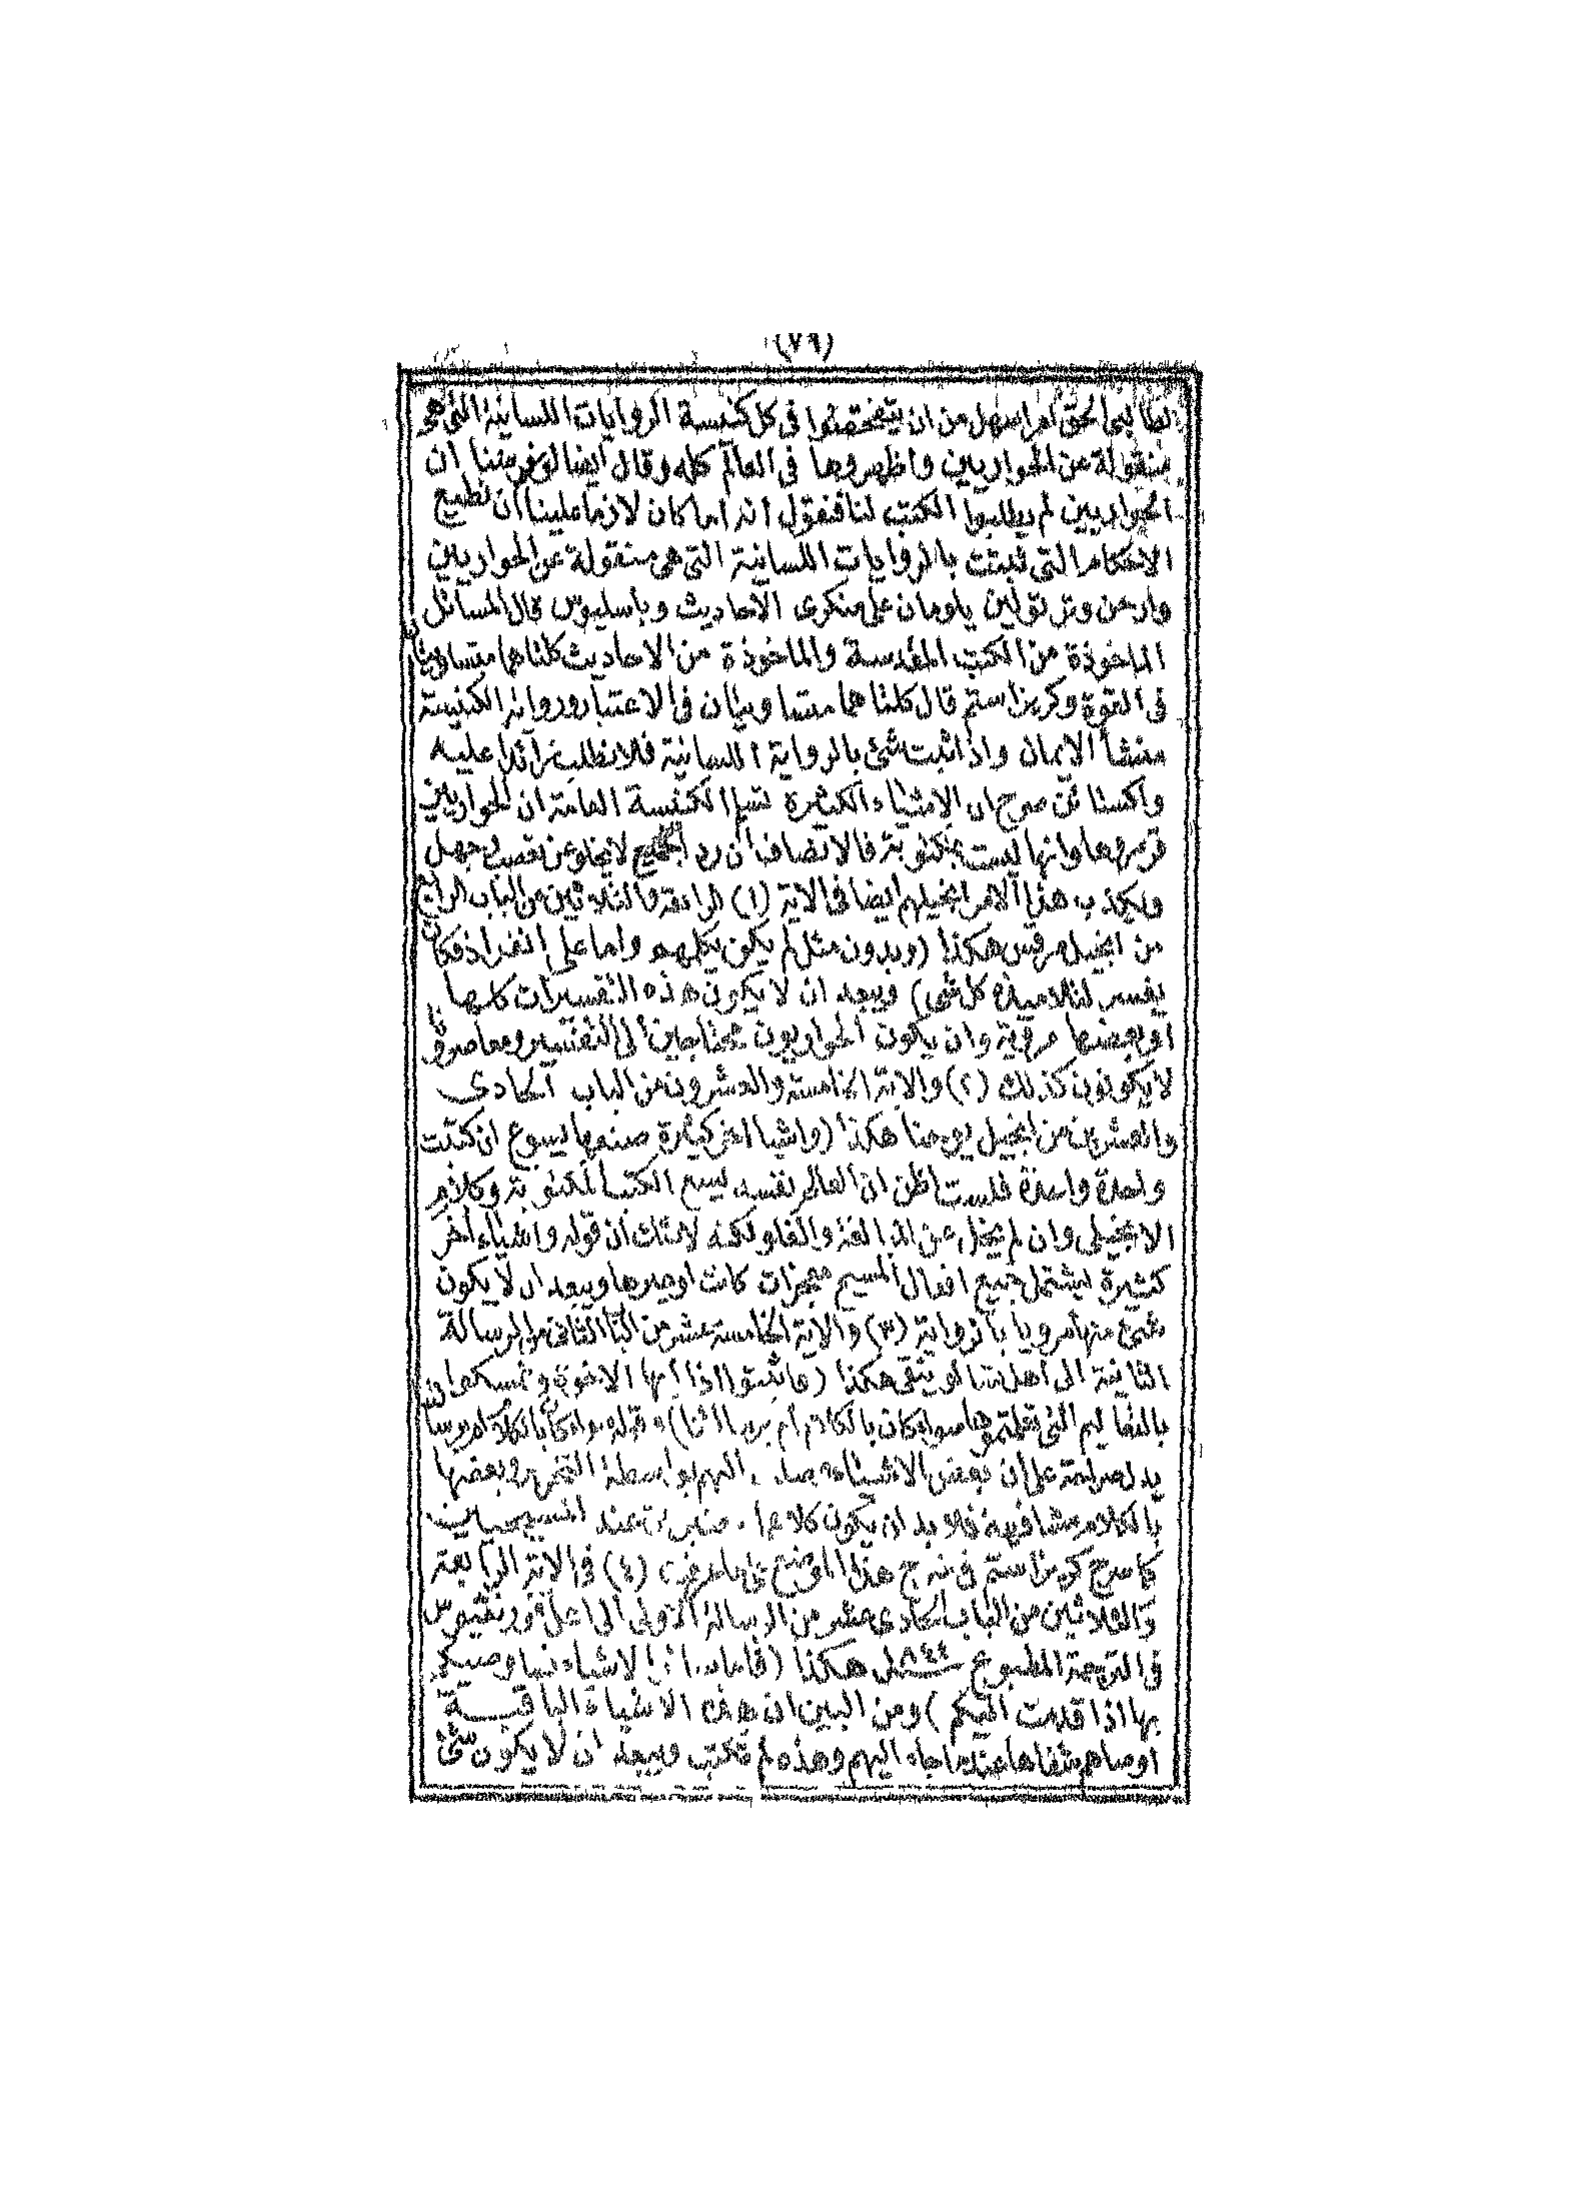 (٧٩)
لطالبي الحق امر اسهل من ان يتفحصوا في كل كنيسة الروايات اللسانية التي هي
منقولة عن الحواريين واظهروها في العالم كله وقال ايضا لو فرضنا ان
الحواريين لم يطلبوا الكتب لنا فنقول انه اما كان لازما علينا ان نطيع
الاحكام التي ثبتت بالروايات اللسانية التي هي منقولة عن الحواريين
وارجن وترتولين ياومان على منكرى الأحاديث وباسليوس قال المسائل
الماخوذة من الكتب المقدسة والماخوذة من الاحاديث كلتاهما متساويتان
في القوة وكريزاستم قال كلتاهما متساويتان في الاعتبار ورواية الكنيسة
منشأ الايمان واذا ثبت شئ بالرواية اللسانية فلا نطلب زائدا عليه
واكستائن صرح ان الاشياء الكثيرة تسلم الكنيسة العامة ان الحواريين
قرروها وانها ليست بمكتوبة فالانصاف ان رد الجميع لا يخلو عن تعصب وجهل
ويكذب هذا الامر انجيلهم ايضا في الاية (١) الرابعة والثلاثين من الباب الرابع
من انجيل مرقس هكذا (وبدون مثل لم يكن يكلمهم واما على انفراد فكان
يفسر لتلاميذه كل شئ) ويبعد ان لا يكون هذه التفسيرات كلها
او بعضها مروية وان يكون الحواريون محتاجين الى التفسير ومعاصرونا
لا يكونون كذلك (٢) والاية الخامسة والعشرون من الباب الحادى
والعشرين من انجيل يوحنا هكذا (واشيا اخر كثيرة صنعها يسوع ان كتبت
واحدة واحدة فلست اظن ان العالم نفسه يسع الكتب المكتوبة وكلام
الانجيلى وان لم يخل عن المبالغة والغلو لكنه لا شك ان قوله واشياء أخر
كثيرة ليشتمل جميع افعال المسيح معجزات كانت او غيرها ويبعد ان لا يكون
شئ منها مرويا بالرواية (٣) والاية الخامسة عشر من الباب الثانى من الرسالة
الثانية الى اهل تسالونيقى هكذا (فاثبتوا اذا ايها الاخوة وتمسكوا
بالتعاليم التي تعلمتموها سواء كان بالكلام أم برسالتنا) وقوله سواء كان بالكلام ام برسالتنا
يدل صراحة على أن بعض الاشياء وصلت اليهم بواسطة التحرير وبعضها
بالكلام مشافهة فلا بد ان يكون كلاهما معتبرين عند المسيحيين
كما صرح كريزاستم في شرح هذا الموضع على ما عرفت (٤) في الاية الرابعة
والثلاثين من الباب الحادى عشر من الرسالة الاولى الى اهل قورنثيوس
في الترجمة المطبوع ١٨٤٤ هكذا (فاما سائر الاشياء فساوصيكم
بها اذا قدمت اليكم) ومن البين ان هذه الاشياء الباقية
اوصاهم شفاها عندما جاء اليهم وهذه لم تكتب ويبعد ان لا يكون شئ